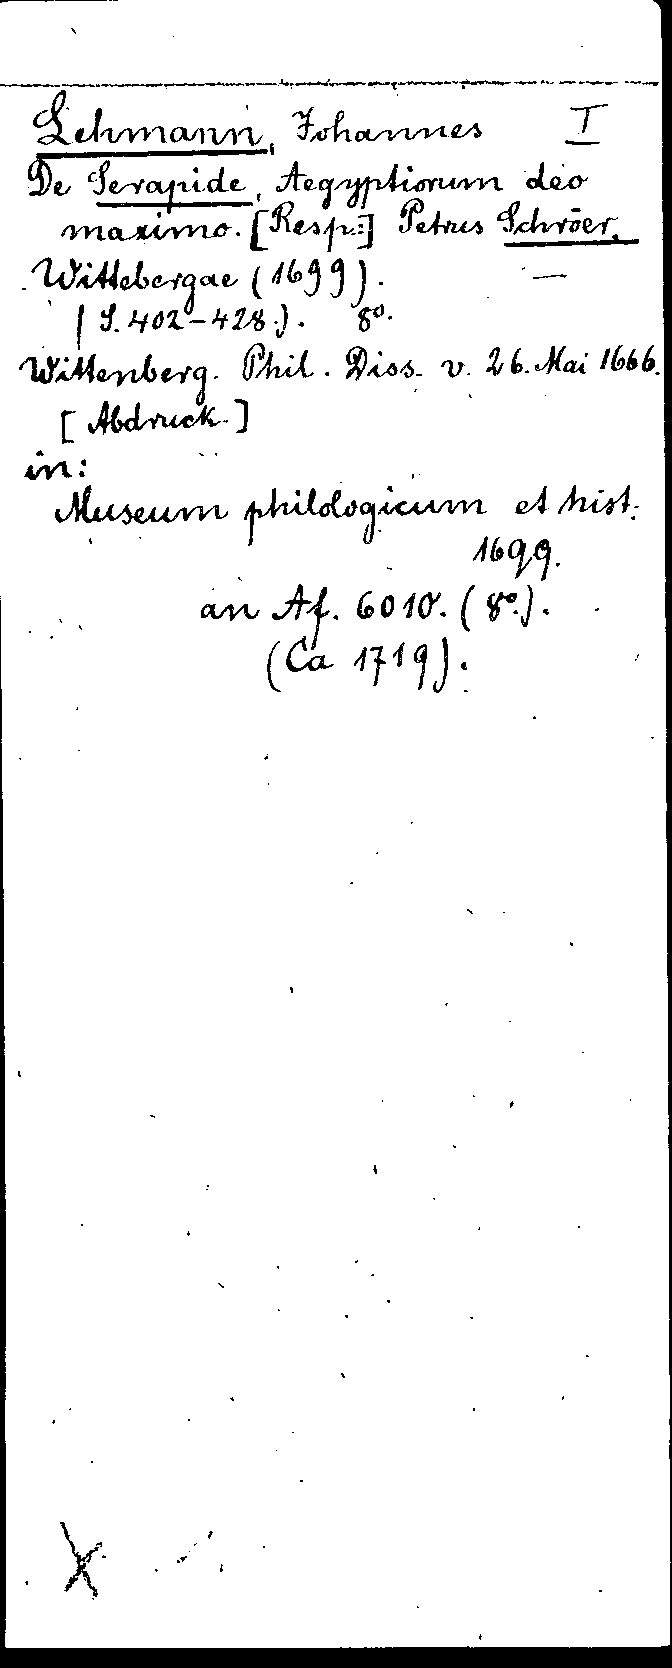 Lehmann, Johannes I
De Serapide, Aegyptiorum deo
maximo. [Resp.:] Petrus Schröer.
Wittebergae (1699). —
(S. 402-428.). 8°.
Wittenberg. Phil. Diss. v. 26. Mai 1666.
[Abdruck.]
in:
Museum philologicum et hist.
1699.
an Af. 6010. (8°.).
(Ca 1719).
X